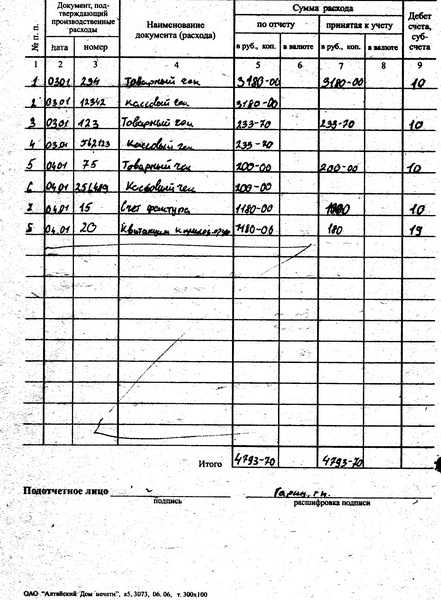 Документ, под- Сумма расхода
тверждающий
производственные
расходы
№ п. п. Наименование документа (расхода) по отчету принятая к учету Дебет счета, суб-счета
дата номер в руб., коп. в валюте в руб., коп. в валюте
1 2 3 4 5 6 7 8 9
1 03.01 234 Товарный чек 3180-00 3180-00 10
2 03.01 12342 Кассовый чек 3180-00
3 03.01 123 Товарный чек 233-70 233-70 10
4 03.01 Кассовый чек 233-70
5 04.01 75 Товарный чек 200-00 200-00 10
6 04.01 256489 Кассовый чек 200-00
7 04.01 15 Счет фактура 1180-00 1000 10
8 04.01 20 Квитанция к 1180-00 180 19
Итого 4793-70 4793-70
Подотчетное лицо
подпись расшифровка подписи
ОАО "Алтайский Дом печати", а5, 3073, 06. 06, т. 300х100